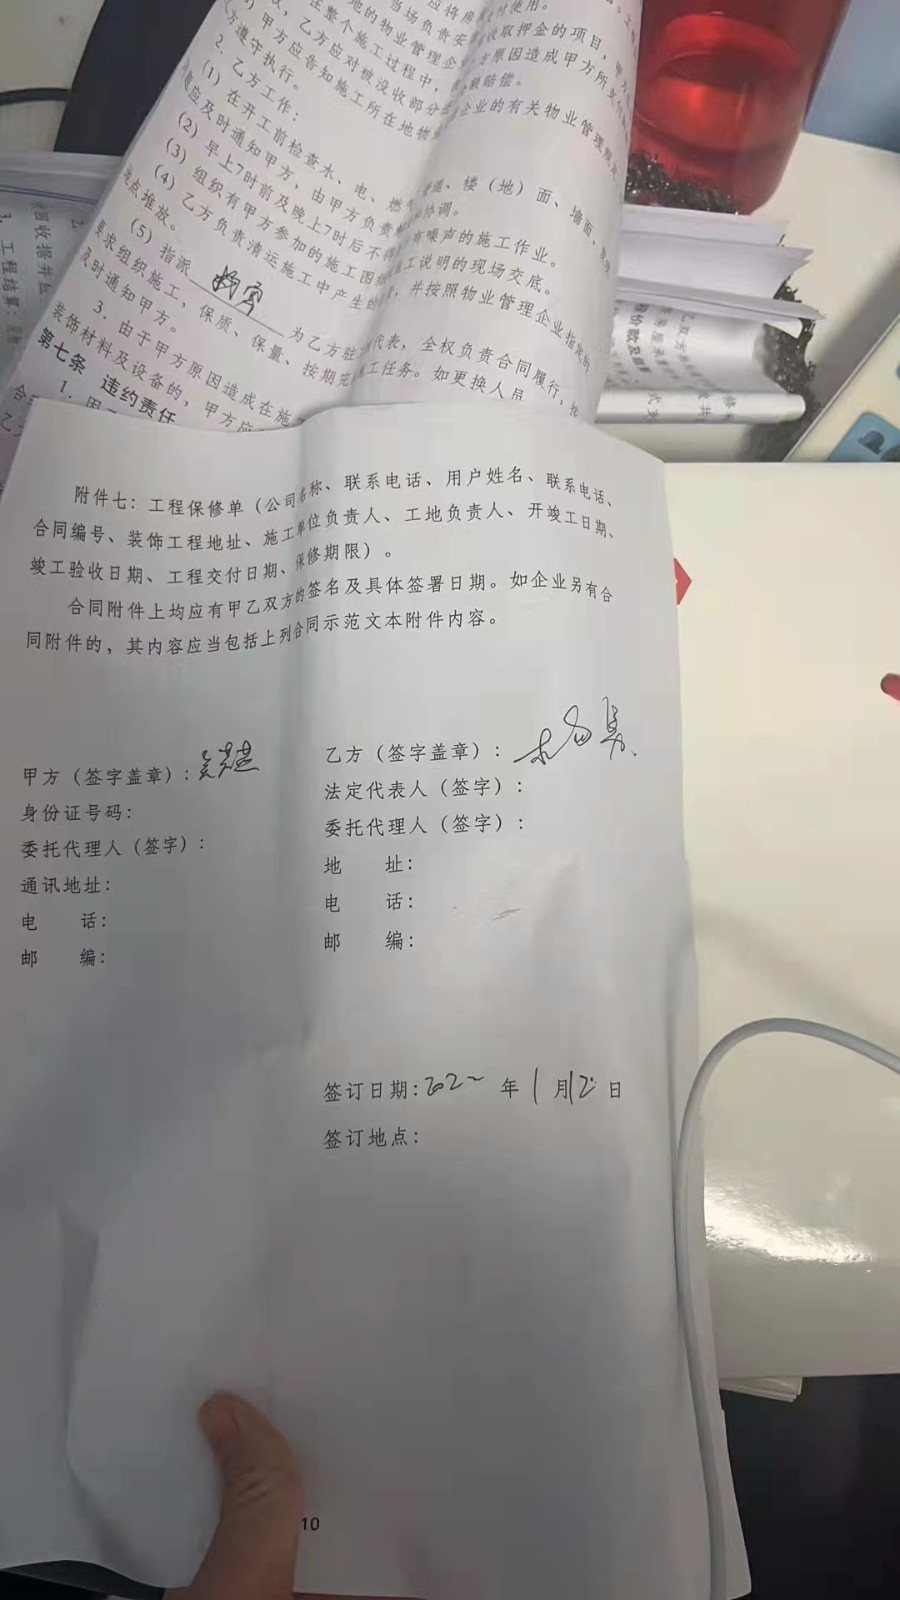 应将房
当场负责安
付使用。
地的物业管理企
收取押金的项目，甲
在整个施工过程中，
方原因造成甲方所支付
乙方应对被没收部分
额赔偿。
甲方应告知施工所在地物业
企业的有关物业管理规
方遵守执行。
2. 乙方工作：
(1) 在开工前检查水、电、燃
道、楼（地）面、墙面，
应及时通知甲方，由甲方负责
协调。
(2) 早上7时前及晚上7时后不得
有噪声的施工作业。
(3) 组织有甲方参加的施工图纸
工说明的现场交底。
(4) 乙方负责清运施工中产生的
，并按照物业管理企业指定的
点堆放。
(5) 指派
为乙方驻
代表，全权负责合同履行，按
要求组织施工，保质、保量、按期完
工任务。如更换人员
及时通知甲方。
3. 由于甲方原因造成在施
装饰材料及设备的，甲方应
第七条 违约责任
附件七：工程保修单（公司名称、联系电话、用户姓名、联系电话、
合同编号、装饰工程地址、施工单位负责人、工地负责人、开竣工日期、
竣工验收日期、工程交付日期、保修期限）。
合同附件上均应有甲乙双方的签名及具体签署日期。如企业另有合
同附件的，其内容应当包括上列合同示范文本附件内容。
甲方（签字盖章）：
身份证号码：
委托代理人（签字）：
通讯地址：
电 话：
邮 编：
乙方（签字盖章）：
法定代表人（签字）：
委托代理人（签字）：
地 址：
电 话：
邮 编：
签订日期：2022 年 1 月 12 日
签订地点：
10